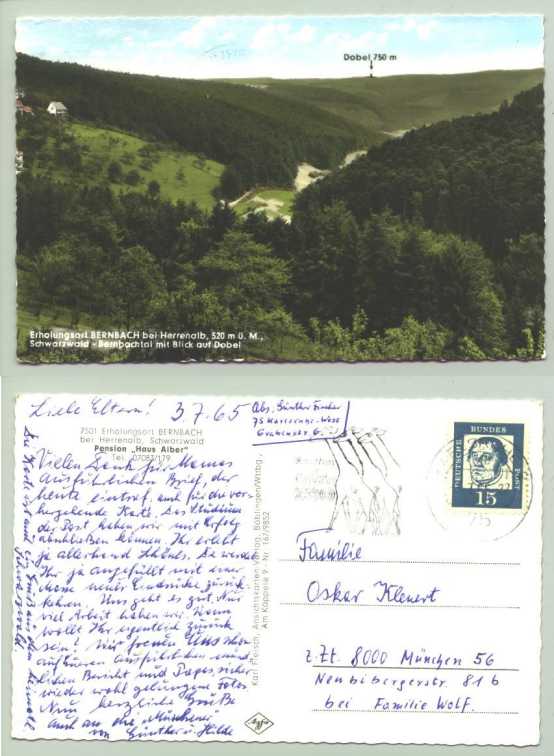 Dobel 750 m
Erholungsort BERNBACH bei Herrenalb, 520 m ü. M.,
Schwarzwald - Bernbachtal mit Blick auf Dobel
Liebe Eltern! 3.7.65
7501 Erholungsort BERNBACH
bei Herrenalb, Schwarzwald
Pension „Haus Alber"
Tel. 07083/179
Vielen Dank für Mamas
ausführlichen Brief, der
heute eintraf, und für die vor-
hergehende Karte. Das Studium
der Post haben wir mit Erfolg
abschließen können. Ihr erlebt
ja allerhand Schönes. Da werdet
Ihr ja angefüllt mit einer
Masse neuer Eindrücke zurück-
kehren. Uns geht es gut. Nur
viel Arbeit haben wir. Wann
wollt Ihr eigentlich zurück
sein? Wir freuen uns schon
auf Euren ausführlichen münd-
lichen Bericht und Papas sicher
wieder wohl gelungene Fotos
Nun herzliche Grüße
auch an die „Münchener"
von Günther u. Hilde
Die Karte ist
Schwarzwald.
Karl Pfeisch, Ansichtskarten-Verlag, Böblingen/Wttbg.
Am Käppele 9 - Nr. 167/9852
Agfa
Abs. Günther Fischer
75 Karlsruhe-West
DEUTSCHE BUNDESPOST
15
75
Familie
Oskar Klenert
z. Zt. 8000 München 56
Neubibergerstr. 81 b
bei Familie Wolf.